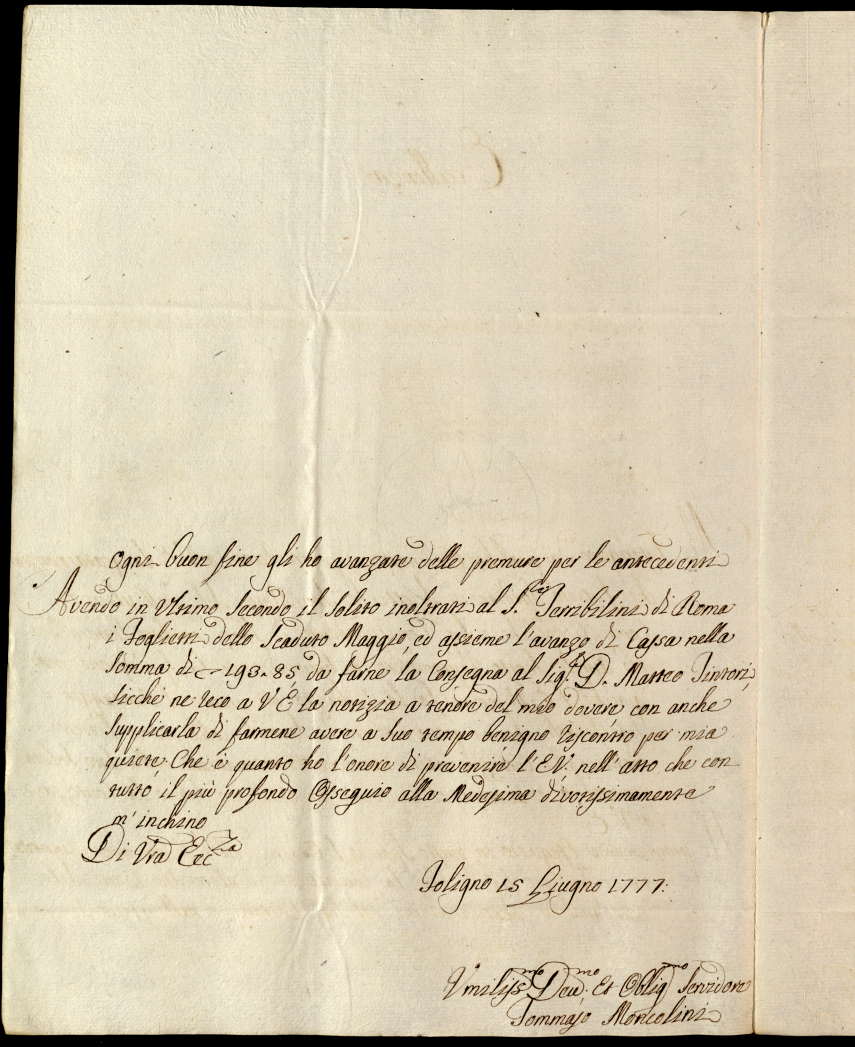 Ogni buon fine gli ho avanzate delle premure per le antecedenti
Avendo in Ultimo secondo il solito inoltrati al S.r Terribilini di Roma
i Foglietti dello Scaduto Maggio, ed assieme l'avanzo di Cassa nella
somma di 193.85 da farne la Consegna al Sig.r D. Matteo Tintori,
sicché ne reco a V E la notizia a tenore del mio dovere, con anche
supplicarla di farmene avere a suo tempo benigno riscontro per mia
quiete. Che è quanto ho l'onore di prevenire l'E V, nell'atto che con
tutto il più profondo Ossequio alla Medesima divotissimamente
m'inchino
Di Vra Ecc.za
Foligno 15 Giugno 1777:
Umiliss.mo Dev.mo Et Oblig.mo Servidore
Tommaso Moncolini